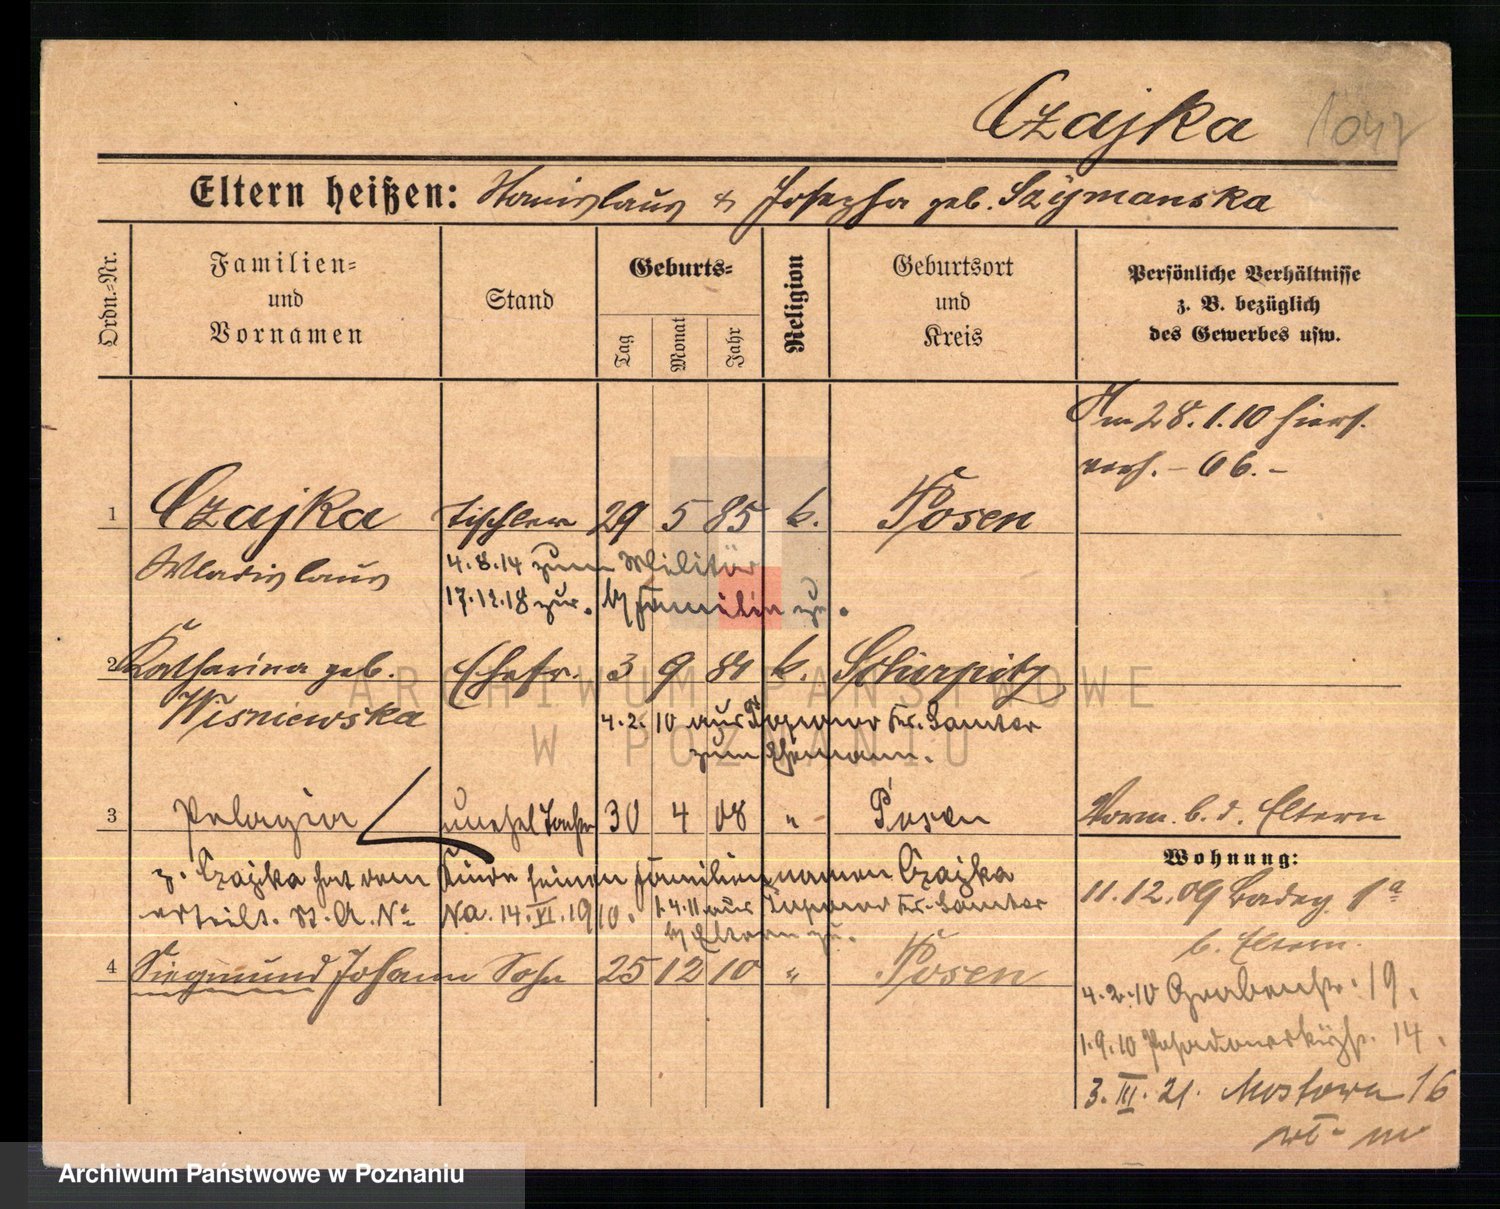 Czajka 1047
Eltern heißen: Stanislaus & Josepha geb. Szymanska
Ordn.-Nr.
Familien-
und
Vornamen
Stand
Geburts-
Tag
Monat
Jahr
Religion
Geburtsort
und
Kreis
Persönliche Verhältnisse
z. B. bezüglich
des Gewerbes usw.
Am 28.1.10 hiers.
verh. - 66. -
1 Czajka Tischler 29 5 85 k. Posen
Wladislaus
4.8.14 zum Militär
17.12.18 zur. b/ Familie zu.
2 Katharina geb. Ehefr. 3 9 81 k. Schirpitz
Wisniewska
4.2.10 aus Kr. Samter
zum Ehemann.
3 Pelagia unehel Tocht 30 4 08 " Posen Vorm. b. d. Eltern
p. Czajka hat dem Kinde seinen Familiennamen Czajka
erteilt. St. A. No IVa. 14.VI.1910. 1.4.11 aus Kr. Samter
b/ Eltern zu.
4 Siegmund Johann Sohn 25 12 10 " Posen
Wohnung:
11.12.09 1a
b. Eltern.
4.2.10 Grabenstr. 19.
1.9.10 14.
3.III.21. Mostowa 16
ARCHIWUM PAŃSTWOWE
W POZNANIU
Archiwum Państwowe w Poznaniu